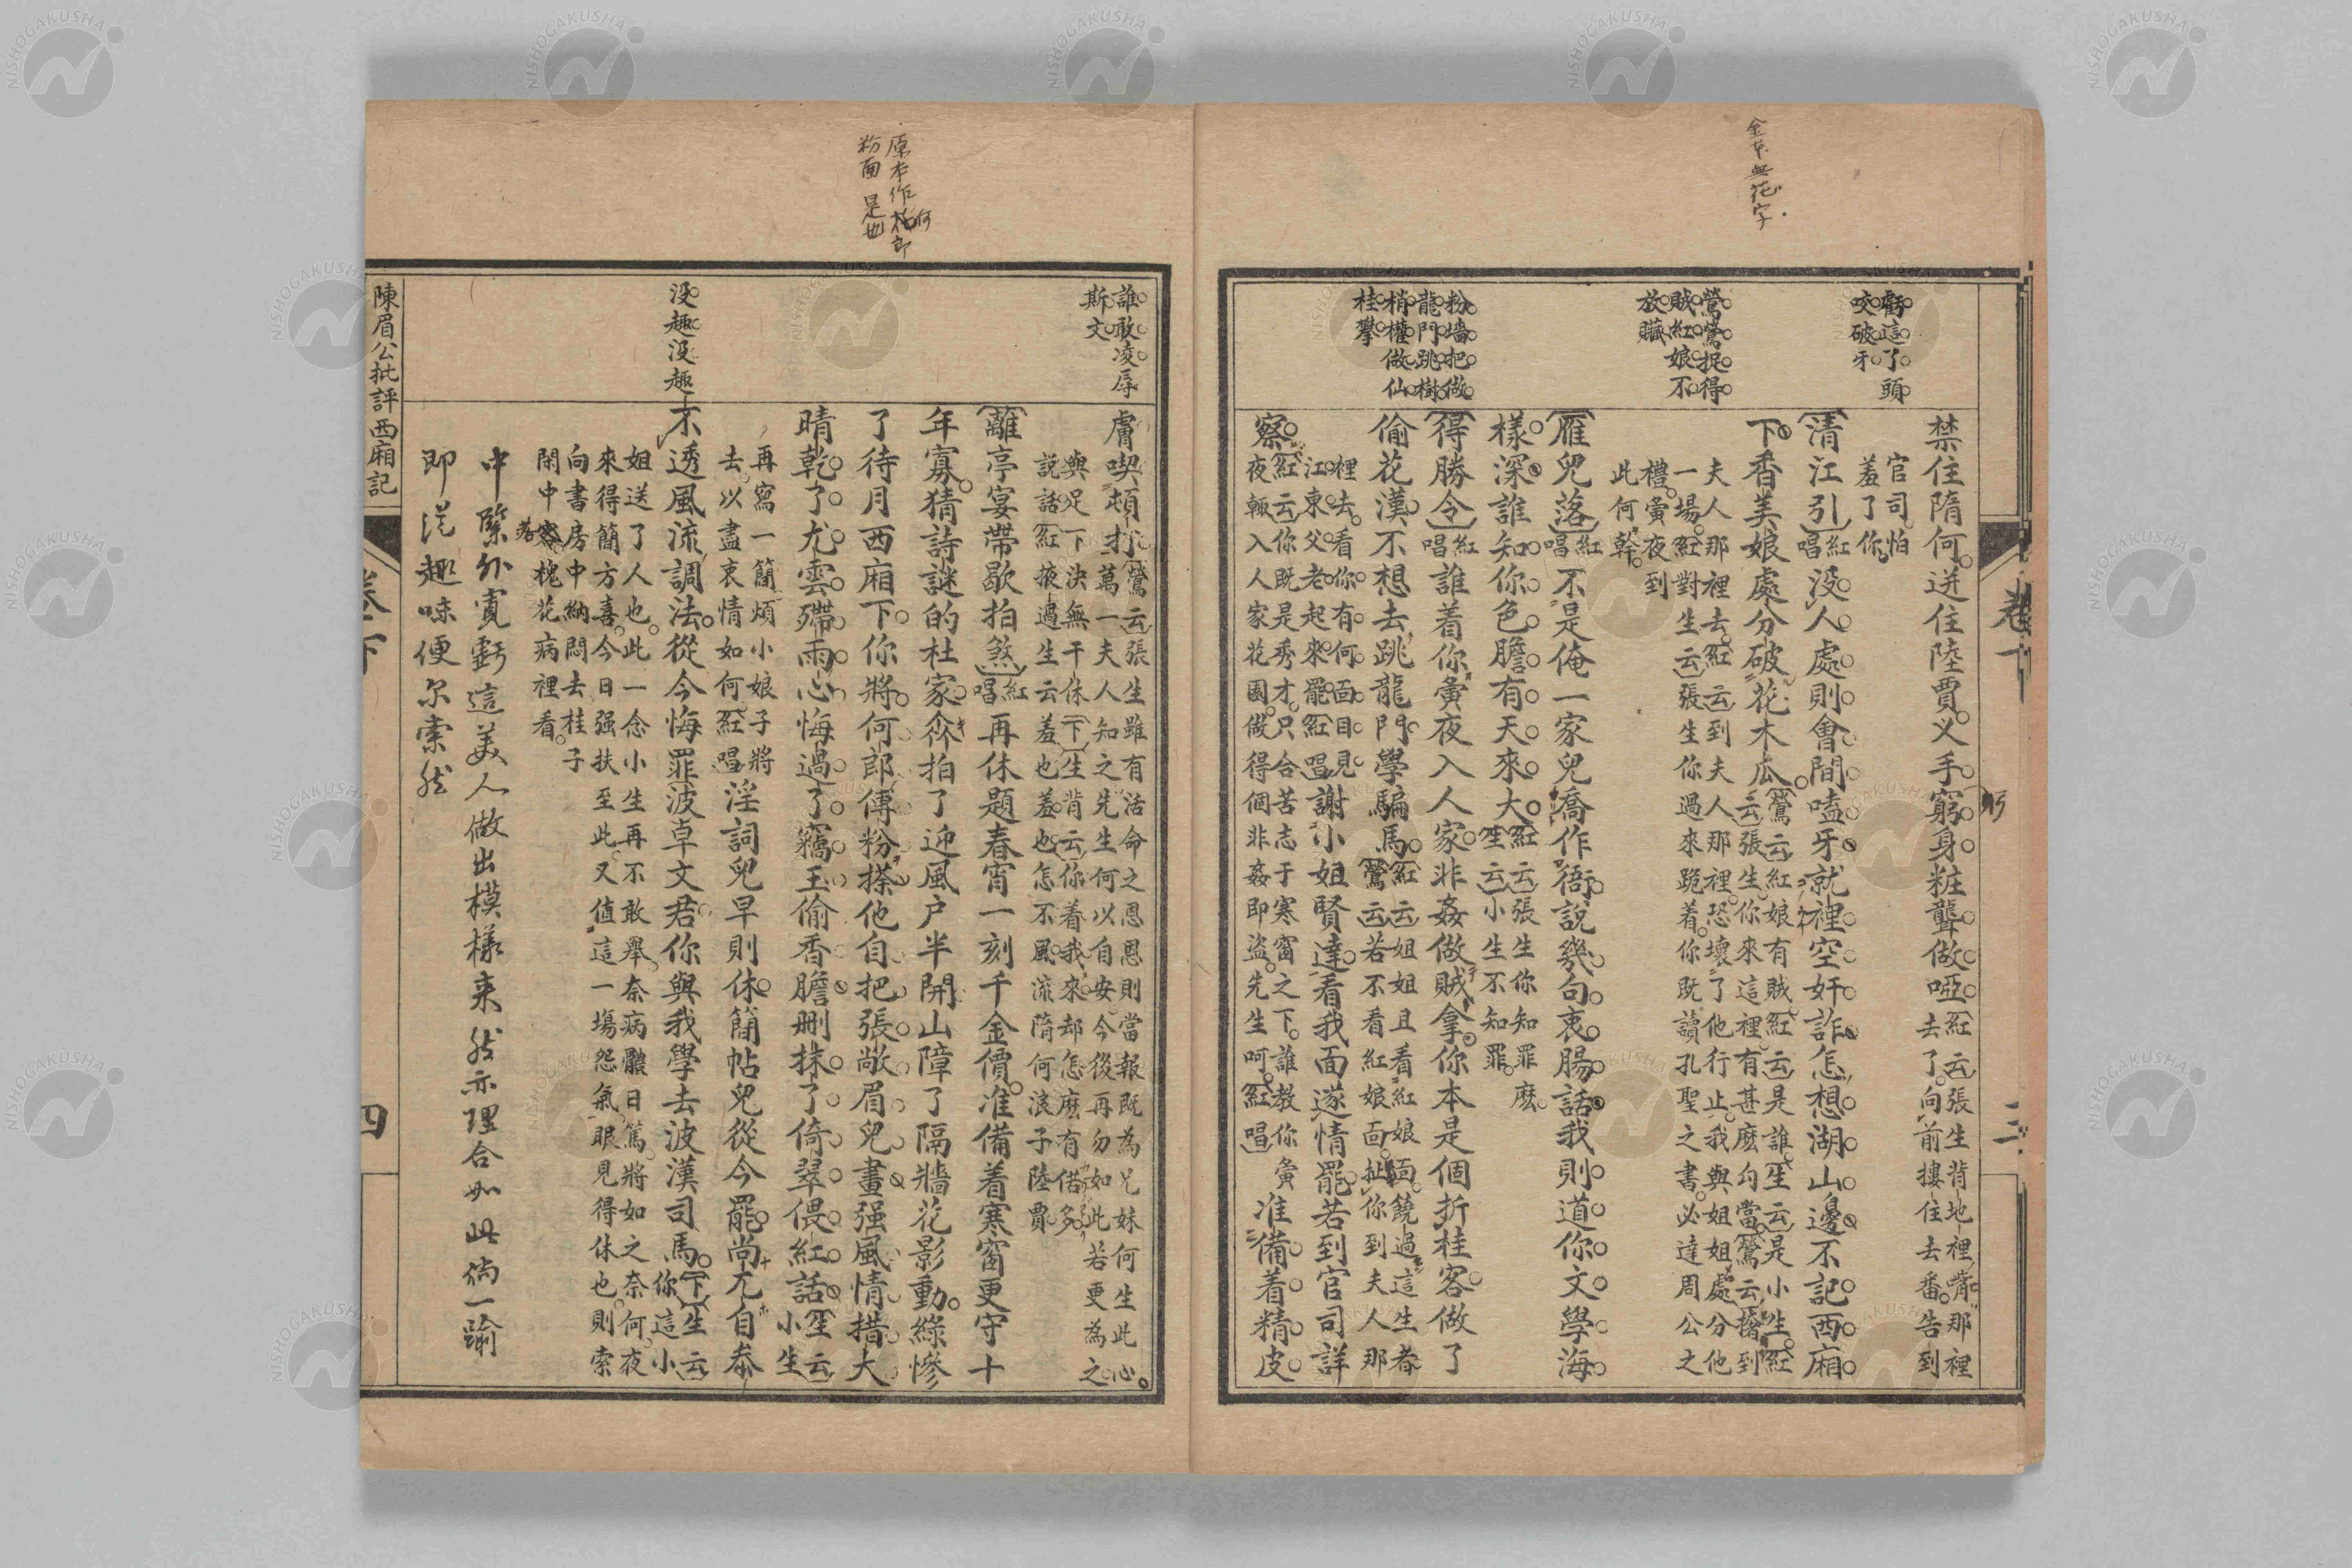 金本無花字
虧這了頭
咬破牙
鶯鶯捉得
賊紅娘不
放贓
粉墻把做
龍門跳樹
梢權做仙
桂攀
卷下
三
躬
禁住隋何。迸住陸賈。义手。窮身。粧聾。做啞。
紅云張生背地裡嘴那裡
去了。向前摟住去番。告到
官司。怕
羞了你。
清江引
紅
唱
没人處則會間嗑牙就裡空奸詐怎想湖山邊不記西廂
下香美娘處分破花木瓜。
鶯云紅娘有賊紅云是誰生云是小生。紅
云張生你來這裡有甚麽勾當鶯云撦到
夫人那裡去。紅云到夫人那裡。恐壞了他行止。我與姐姐處分他
一場。紅對生云張生你過來跪着。你既讀孔聖之書。必達周公之
禮。夤夜到
此何幹。
雁兒落
紅
唱
不是俺一家兒喬作衙說幾句衷腸話我則道你文學海
樣深誰知你色膽有天來大
紅云張生你知罪麽。
生云小生不知罪。
得勝令
紅
唱
誰着你夤夜入人家。非姦做賊拿。你本是個折桂客做了
偷花漢不想去跳龍門學騙馬。
紅云姐姐且看紅娘面饒過這生者
鶯云若不看紅娘面。扯你到夫人那
裡去。看你有何面目見
江東父老起來罷紅唱
謝小姐賢達看我面遂情罷若到官司詳
察。
紅云你既是秀才。只合苦志于寒窗之下。誰教你夤
夜輒入人家花園。做得個非姦即盜。先生呵。紅唱
准備着精皮
原本作何郎
粉面是也
誰敢凌辱
斯文
没趣没趣
膚喫頓打。
鶯云張生雖有活命之恩恩則當報既為兄妹何生此心。
萬一夫人知之先生何以自安今後再勿如此若更為之
與足下決無干休下生背云你着我來却怎麽有偌多
説話紅掖過生云羞也羞也怎不風流隋何浪子陸賈
離亭宴帶歇拍煞
紅
唱
再休題春宵一刻千金價。准備着寒窗更守十
年寡。猜詩謎的杜家㑳拍了迎風户半開山障了隔牆花影動。綠慘
了待月西廂下。你將何郎傅粉搽他自把張敞眉兒畫强風情措大
晴乾了尤雲殢雨心悔過了竊玉偷香膽刪抹了倚翠偎紅話
生云
小生
再寫一簡煩小娘子將
去。以盡衷情如何紅唱
淫詞兒早則休簡帖兒從今罷尚兀自參
不透風流調法。從今悔罪波卓文君你與我學去波漢司馬。
下生云
你這小
姐送了人也。此一念小生再不敢舉。奈病體日篤。將如之奈何。夜
來得簡方喜。今日强扶至此又值這一場怨氣眼見得休也。則索
向書房中納悶去桂子
閑中落槐花病裡看。
中緊外寛虧這美人做出模樣來然亦理合如此倘一踰
即從趣味便尔索然
陳眉公批評西廂記
卷下
四